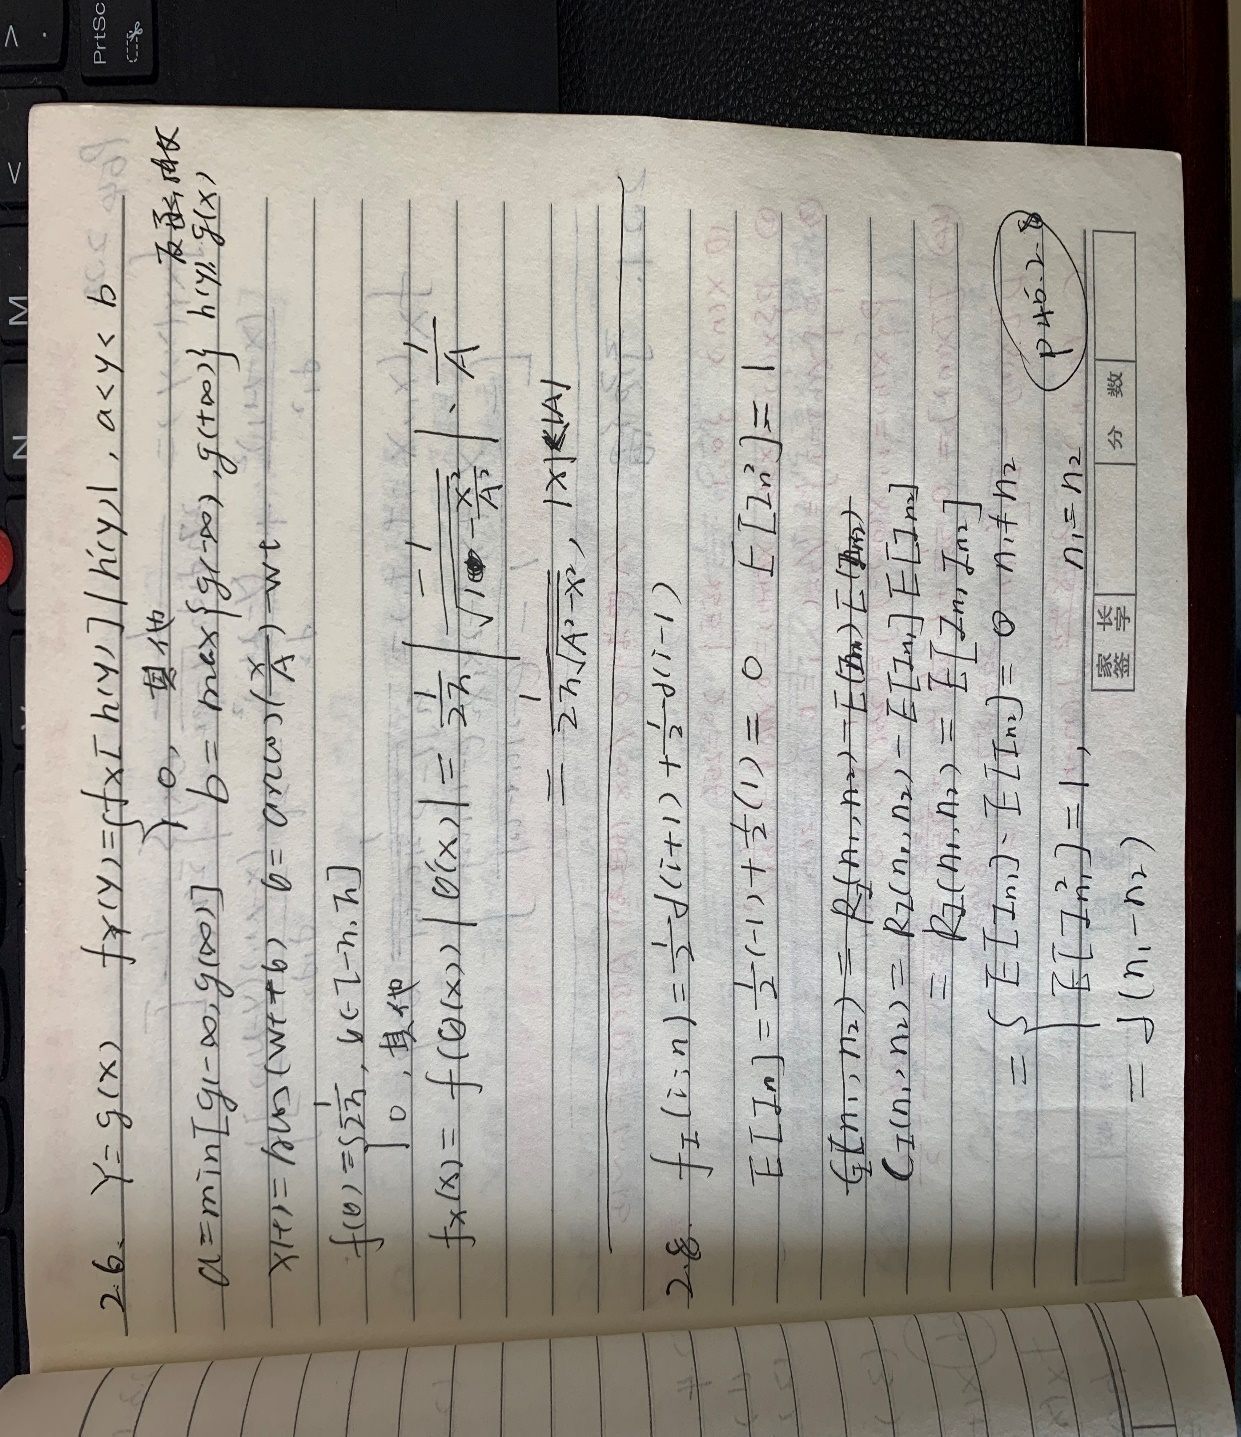 2.6. Y=g(x) fY(y)={fx[h(y)]|h'(y)|, a<y<b
0, 其他 反函数
a=min[g(-∞),g(∞)] b=max{g(-∞),g(+∞)} h(y), g(x)
x(t)=Acos(wt+θ) θ=arccos(x/A)-wt
f(θ)={1/2π, θ∈[-π,π]
0, 其他
fx(x)=f(θ(x))|θ'(x)|=1/2π|-1/√(1-x²/A²)|·1/A
=1/2π√(A²-x²), |x|<|A|
2.8. fI(i;n)=1/2δ(i+1)+1/2δ(i-1)
E[In]=1/2(-1)+1/2(1)=0 E[In²]=1
CI(n1,n2)=RI(n1,n2)-E(In1)E(In2)
CI(n1,n2)=RI(n1,n2)-E[In1]E[In2]
=RI(n1,n2)=E[In1In2]
={E[In1]·E[In2]=0 n1≠n2
E[In1²]=1, n1=n2
=δ(n1-n2)
P46.2-8
家长签字 分数
PrtSc
M
N